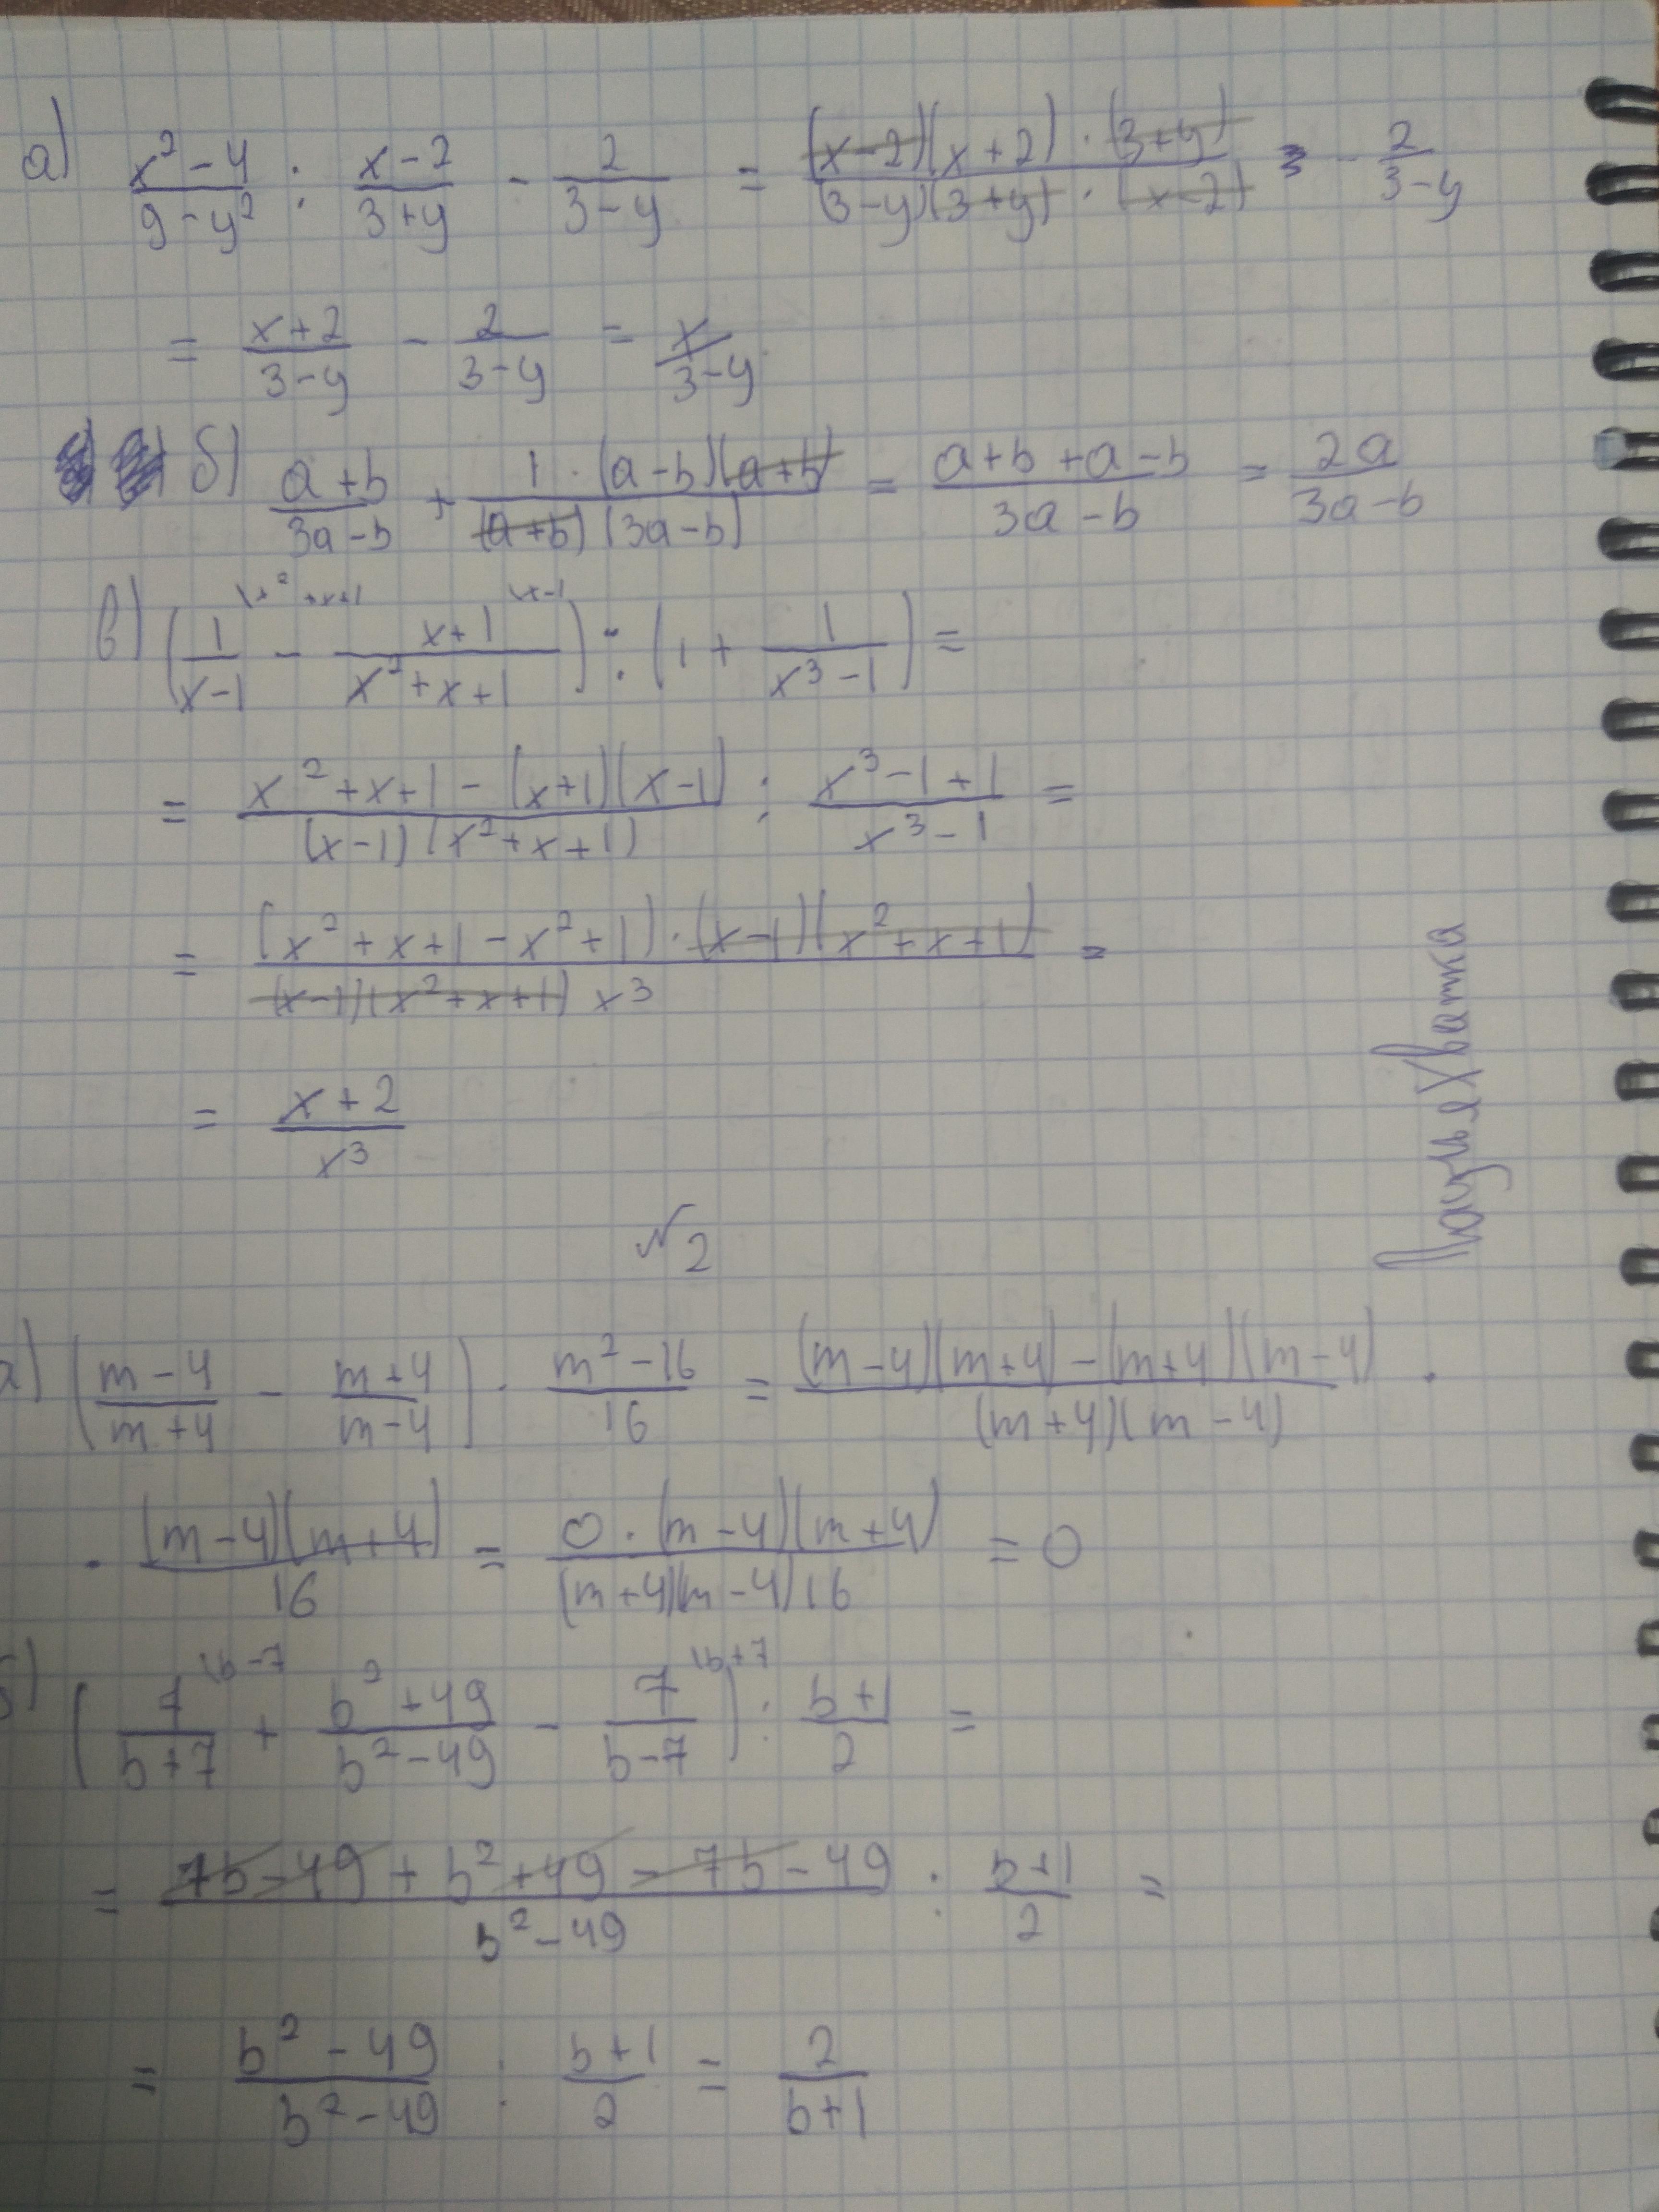 а) (x² - 4)/(9 - y²) : (x - 2)/(3 + y) - 2/(3 - y) = ((x - 2)(x + 2) · (3 + y))/((3 - y)(3 + y) · (x - 2)) - 2/(3 - y)
= (x + 2)/(3 - y) - 2/(3 - y) = x/(3 - y)
б) (a + b)/(3a - b) + (1 · (a - b)(a + b))/((a + b)(3a - b)) = (a + b + a - b)/(3a - b) = 2a/(3a - b)
в) (1/(x - 1) \x² + x + 1 - (x + 1)/(x² + x + 1) \x - 1) : (1 + 1/(x³ - 1)) =
= (x² + x + 1 - (x + 1)(x - 1))/((x - 1)(x² + x + 1)) : (x³ - 1 + 1)/(x³ - 1) =
= ((x² + x + 1 - x² + 1) · (x - 1)(x² + x + 1))/((x - 1)(x² + x + 1) x³) =
= (x + 2)/x³
№2
а) ((m - 4)/(m + 4) - (m + 4)/(m - 4)) · (m² - 16)/16 = ((m - 4)(m + 4) - (m + 4)(m - 4))/((m + 4)(m - 4)) ·
· ((m - 4)(m + 4))/16 = (0 · (m - 4)(m + 4))/((m + 4)(m - 4) 16) = 0
б) (7/(b + 7) \b - 7 + (b² + 49)/(b² - 49) - 7/(b - 7) \b + 7) : (b + 1)/2 =
= (7b - 49 + b² + 49 - 7b - 49)/(b² - 49) : (b + 1)/2 =
= (b² - 49)/(b² - 49) : (b + 1)/2 = 2/(b + 1)